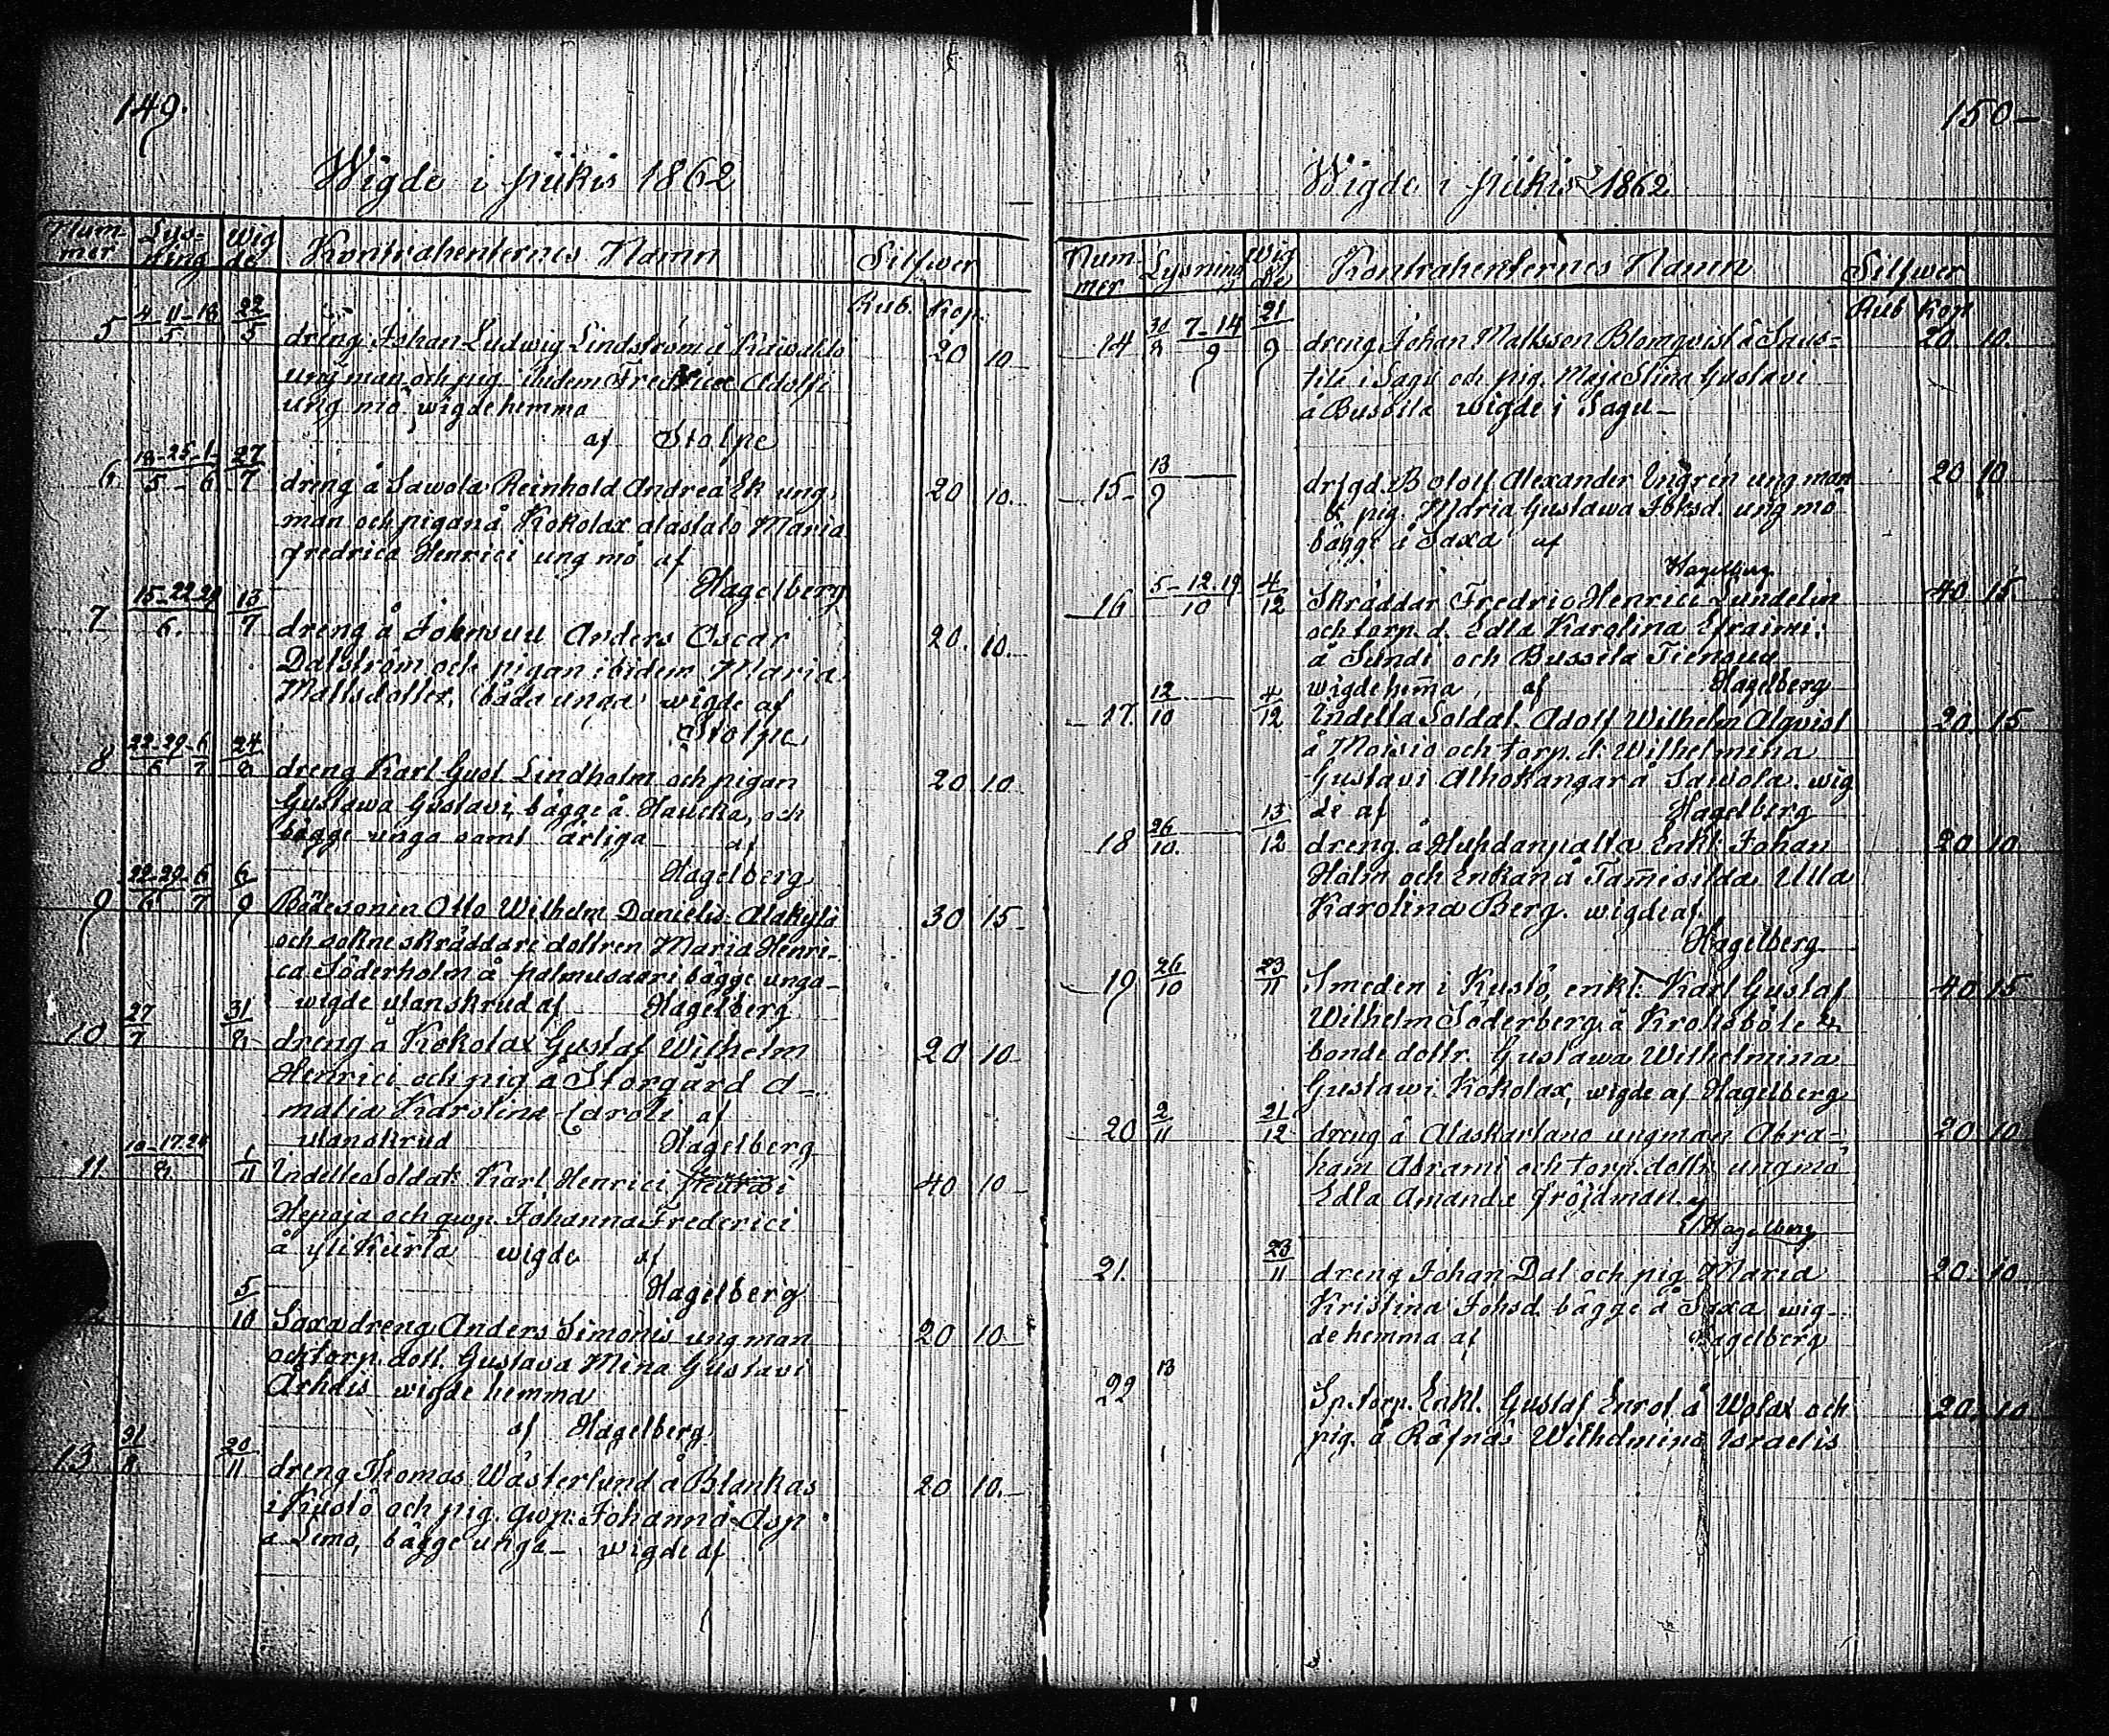 149.
Wigde i piikis 1862
Num-
mer
Lys-
ning
Wig
de
Kontrahenternes Namn
Silfwer
Rub. Kop.
5 4-11-18/5 22/5
dreng Johan Ludwig Lindström å
ung man och pig ibidem Fredrica Adolfi
ung mö wigde hemma
af Stolpe
6 18-25-1/5-6 27/7
dreng å Sawola Reinhold Andreæ Ek ung
man och pigan å Kokolax alastalo Maria
fredrica Henrici ung mö af
Hagelberg
20 10
20 10.
7 15-22-29/6. 13/7
dreng å Anders Oscar
Dalström och pigan ibidem Maria
Mattsdotter, båda unga wigde af
Stolpe
20. 10.
8 22-29-6/6 7 24/8
dreng Karl Gust Lindholm och pigan
Gustawa Gustavi, bägge å och
bägge unga samt ärliga af
Hagelberg
20 10
9 22-29-6/6 7 6/9
Bondesonen Otto Wilhelm Danielis Alakylä
och sokneskräddare dottren Maria Henri-
ca Söderholm å palmusaari bägge unga
wigde utan skrud af Hagelberg
30 15
10 27/7 31/8
dreng å Kokolax Gustaf Wilhelm
Henrici och pig å Storgård A-
malia Karolina Caroli af
utan skrud Hagelberg
20 10
11 10-17.24/8. 1/11
Indelta Soldat: Karl Henrici i
Hepoja och qwp. Johanna Frederici
å yli Kurla wigde af
Hagelberg
40 10
5/10
Saxa dreng Anders Simonis ung man
och torp. dott. Gustava Mina Gustavi
Arhais wigde hemma
af Hagelberg
20 10
13 21/8 20/11
dreng Thomas Wästerlund å Blankas
i Kustö och pig. qwp: Johanna Asp
å Lemo, bägge unga wigde af
20 10.
150
Wigde i piikis 1862
Num-
mer
Lysning
Wig
de
Kontrahenternes Namn
Silfwer
Rub Kop
14 30/8 7-14/9 21/9
dreng Johan Mattsson Blomqvist å Saus-
tila i Sagu och pig. Maja Stina Gustavi
å Bussila wigde i Sagu
20 10.
15 13/9
Alexander Engren ung man
& pig. Maria Gustawa Johsd. ung mö
bägge å Saxa af
Hagelberg
20 10
16 5-12.19/10 4/12
Skräddar Fredric Henrici Lundelin
och torp. d. Edla Karolina Efraimi
å Sundi och Bussila Tienoua
wigde hem̄a, af Hagelberg
40 15
17. 12/10 4/12
Indelta Soldat. Adolf Wilhelm Alqvist
å Moisio och torp. d. Wilhelmina
Gustavi Alhokangar å Sawola. wig
de af Hagelberg
20. 15
18 26/10. 13/12
dreng å Huhdanpalta Enkl. Johan
Holm och Enkan å Tam̄isilda Ulla
Karolina Berg. wigde af
Hagelberg
20 10
19 26/10 23/11
Smeden i Kustö, enkl: Karl Gustaf
Wilhelm Söderberg å Kroksböle &
bonde dottr. Gustawa Wilhelmina
Gustawi Kokolax, wigde af Hagelberg
40 15
20 2/11 21/12
dreng å Alaskartano ung man Abra-
ham Abrami och torp. dottr ung mö
Edla Amanda fröjdman af
Hagelberg
20 10
21. 23/11
dreng Johan Dal och pig Maria
Kristina Johsd. bägge å Saxa wig-
de hemma af Hagelberg
20. 10
22 13
Sp. torp. Enkl. Gustaf Enrot å Wolax och
pig. å Räfnäs Wilhelmina Israelis
20. 10